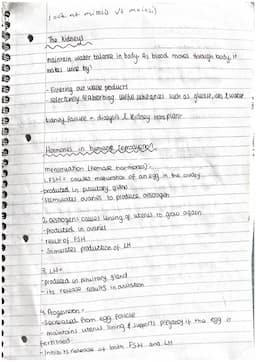 (look at mitosis vs meiosis)
The Kidneys
maintain water balance in body. As blood moves through body, it
makes urine by:
- Filtering out waste products
- selectively reabsorbing useful substances such as glucose, ions & water
kidney failure = dialysis & kidney transplant
Hormones in
menstruation (female hormones) -
1. FSH = causes maturation of an egg in the ovary
- produced in pituitary gland
- stimulates ovaries to produce oestrogen
2. oestrogens causes lining of uterus to grow again
- Produced in ovaries
- result of FSH
- Stimulates production of LH
3. LH =
- produced in pituitary gland
- its release results in ovulation
4. Progesteron -
- Secreted from egg follicle
- maintains uterus lining & supports pregnancy if the egg is
fertilised
- Inhibits release of both FSH and LH